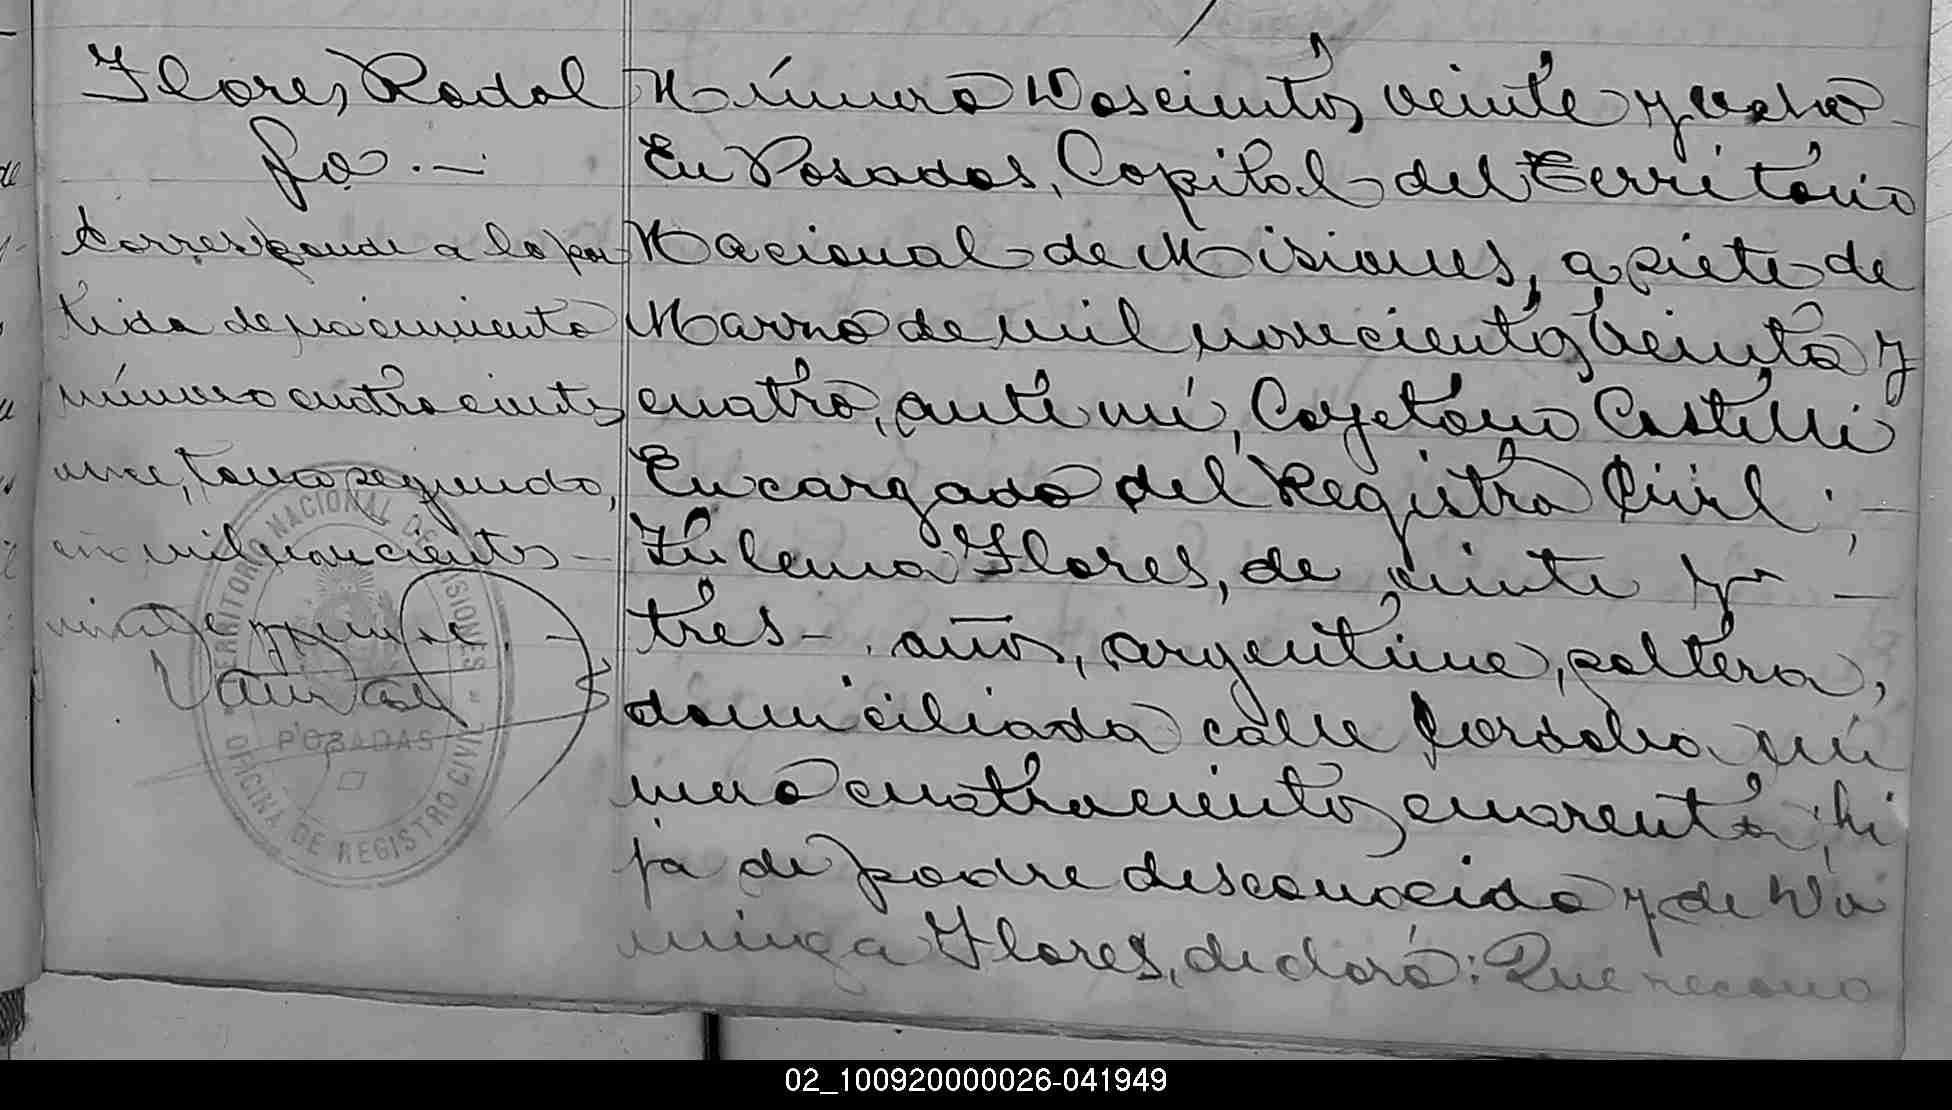 Flores, Rodol
fo.—
Corresponde a la par
tida de nacimiento
número cuatrocientos
once, tomo segundo,
año mil novecientos —
TERRITORIO NACIONAL DE MISIONES
POSADAS
OFICINA DE REGISTRO CIVIL
Número Doscientos veinte y ocho
En Posadas, Capital del Territorio
Nacional de Misiones, a siete de
Marzo de mil novecientos veinte y
cuatro, ante mí, Cayetano Castelli
Encargado del Registro Civil; —
Zulema Flores, de veinte y —
tres — años, argentina, soltera,
domiciliada calle Cordoba nú
mero cuatrocientos cuarenta, hi
ja de padre desconocido y de Do
minga Flores, declaró: Que recono
02_100920000026-041949